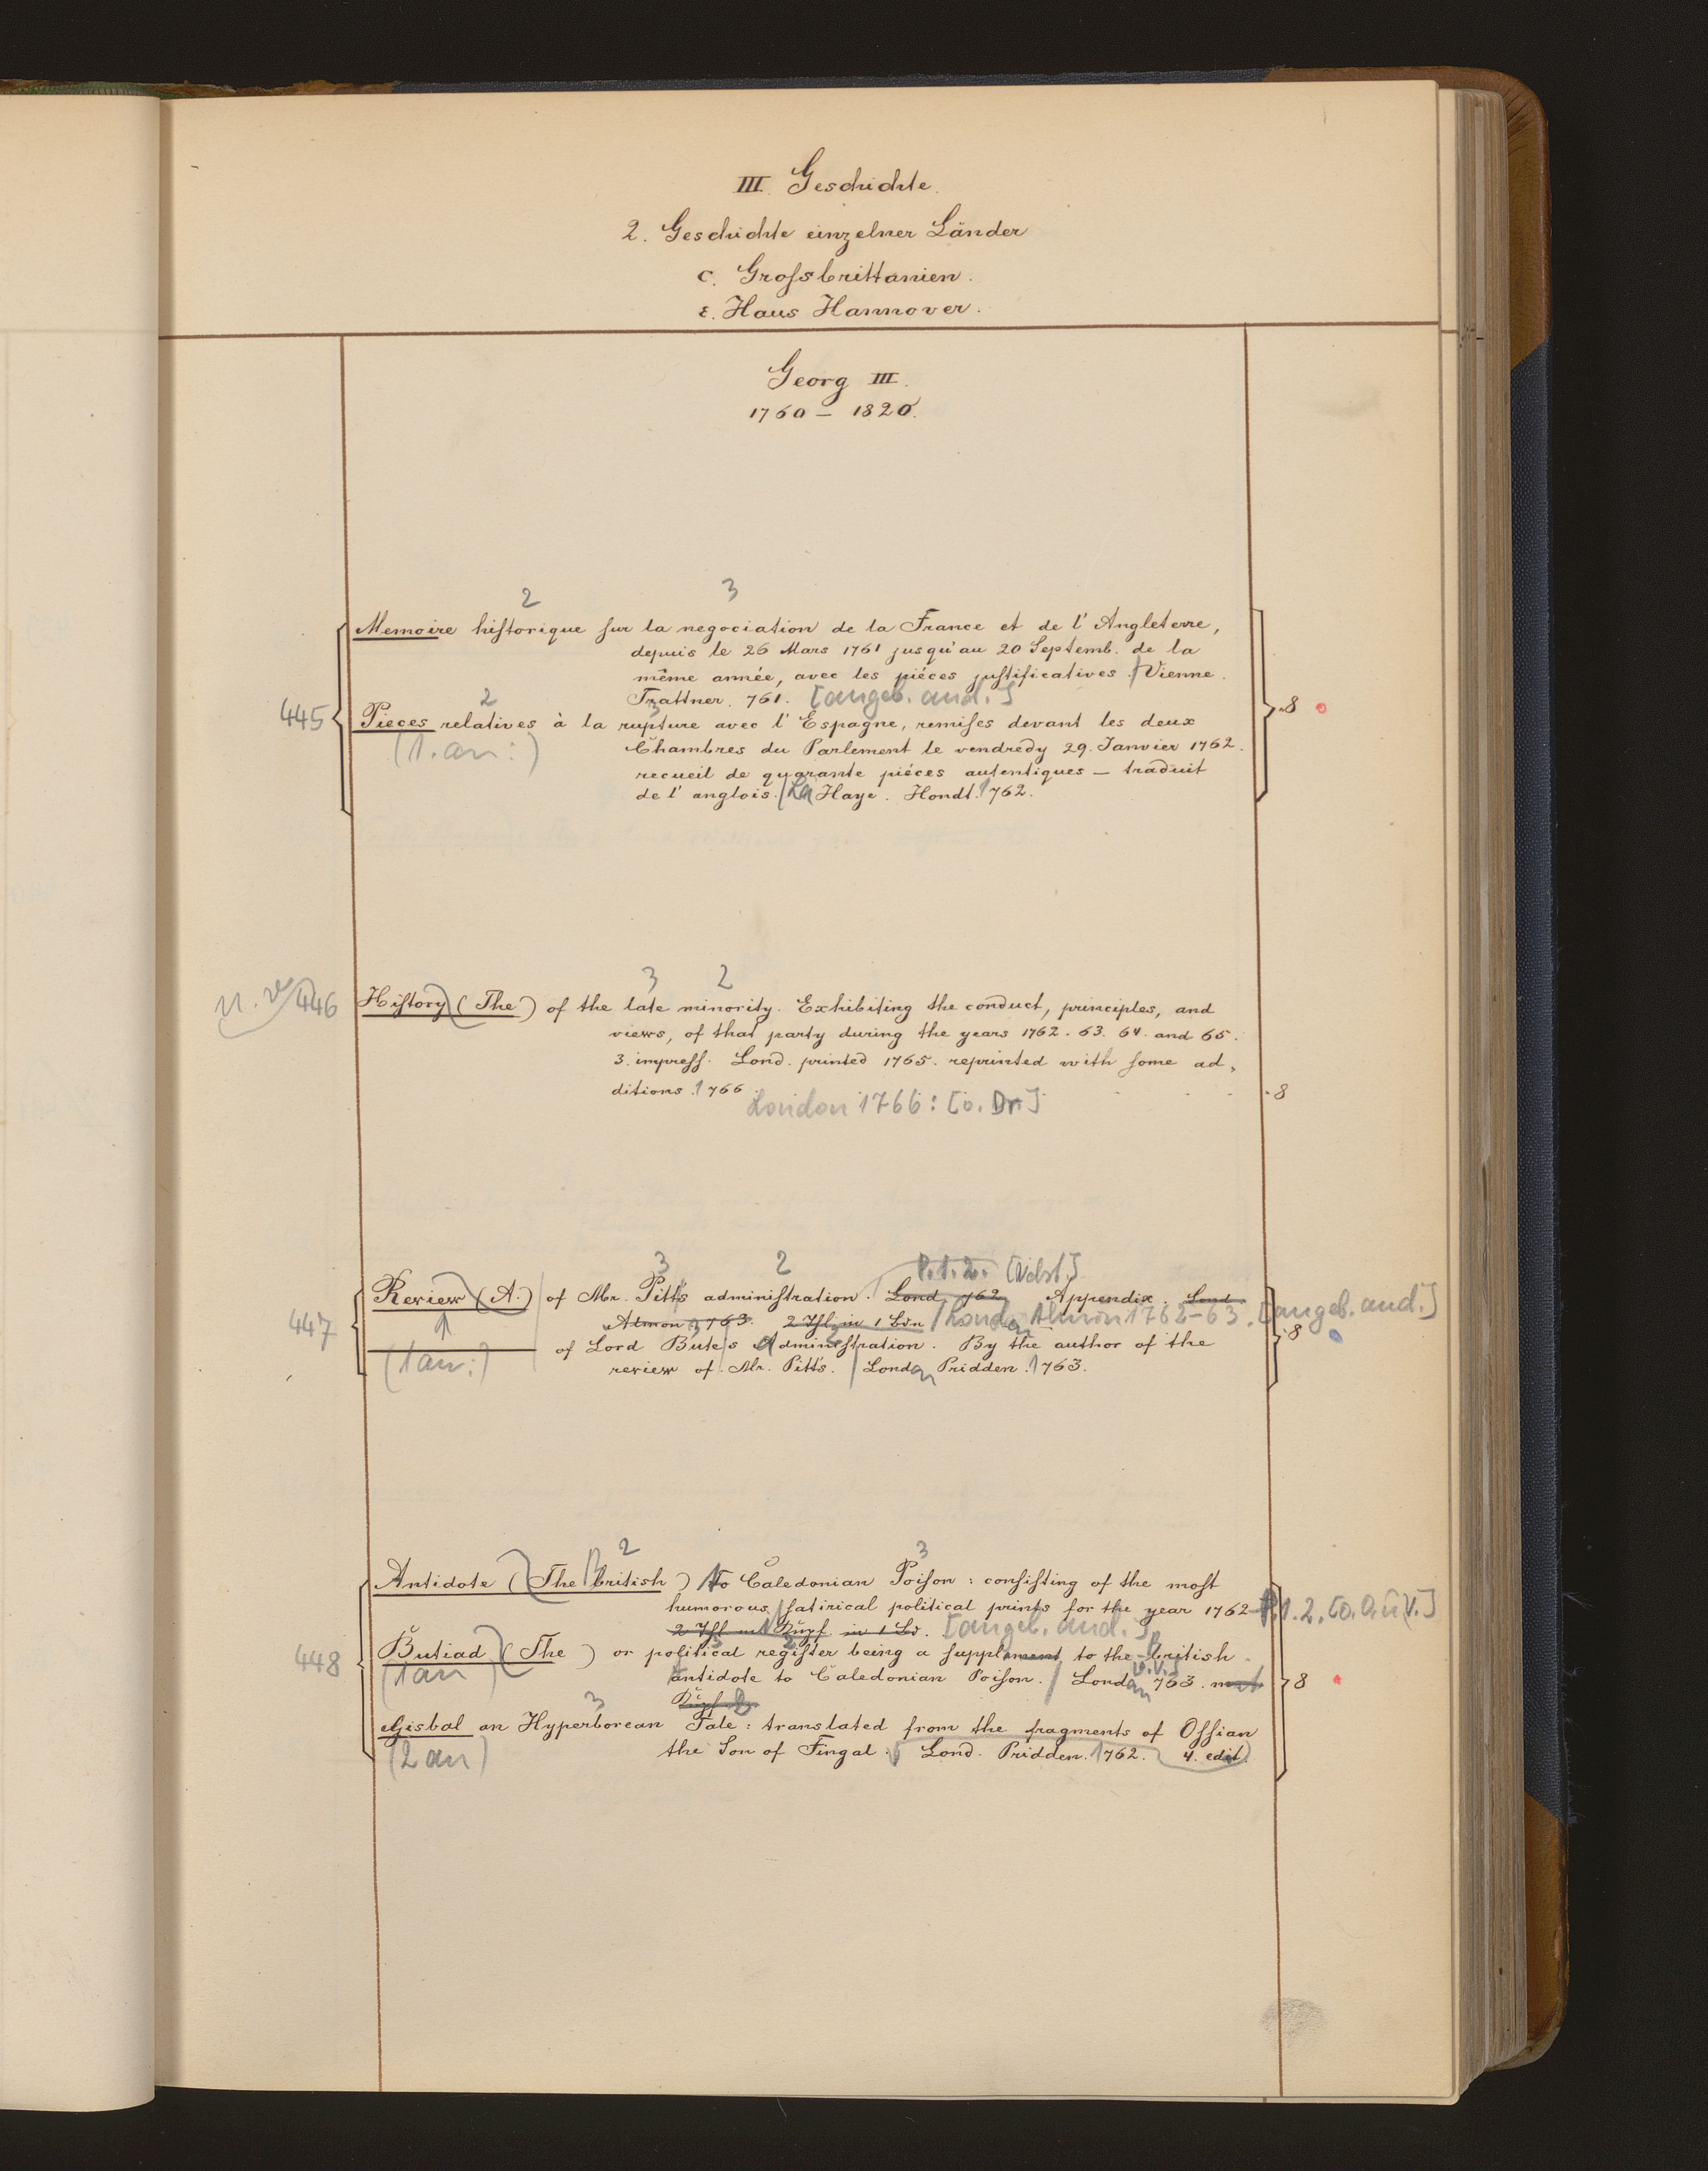 III. Geschichte.
2. Geschichte einzelner Länder
c. Grossbrittanien.
ε. Haus Hannover.
Georg III.
1760 – 1820.
2 3
Memoire historique sur la negociation de la France et de l'Angleterre,
depuis le 26 Mars 1761 jusqu'au 20 Septemb. de la
même année, avec les piéces justificatives. / Vienne.
Trattner. 761. [angeb. and.]
445 8
2 3
Pieces relatives à la rupture avec l'Espagne, remises devant les deux
(1. an:) Chambres du Parlement le vendredy 29. Janvier 1762.
recueil de quarante piéces autentiques – traduit
de l'anglois. / La Haye. Hondt. 1762.
3 2
446 History (The) of the late minority. Exhibiting the conduct, principles, and
views, of that party during the years 1762. 63. 64. and 65.
3. impress. Lond. printed 1765. reprinted with some ad-
ditions. 1766. 8
London 1766: [o. Dr.]
3 2 P.1.2. [Nebst]
Review (A) of Mr. Pitt's administration. Lond. 762. Appendix. Lond.
447 Almon 763. 2 Thl. in 1 Bdn / London, Almon 1762-63. [angeb. and.] 8
of Lord Bute's Administration. By the author of the
(1 an:) review of Mr. Pitts. / London Pridden. 1763.
2 3
Antidote (The british) To Caledonian Poison: consisting of the most
humorous satirical political prints for the year 1762 P.1.2. [o.O.u.V.]
2 Thl mit Kupf. in 1 Bd. [angeb. and.]
448 Butiad (The) or political register being a supplement to the british
(1 an) antidote to Caledonian Poison. / London [o.V.] 763. mit 8
Kupf.
3
Gisbal an Hyperborean Tale: translated from the fragments of Ossian
(2 an) the Son of Fingal. Lond. Pridden. 1762. 4. edit.